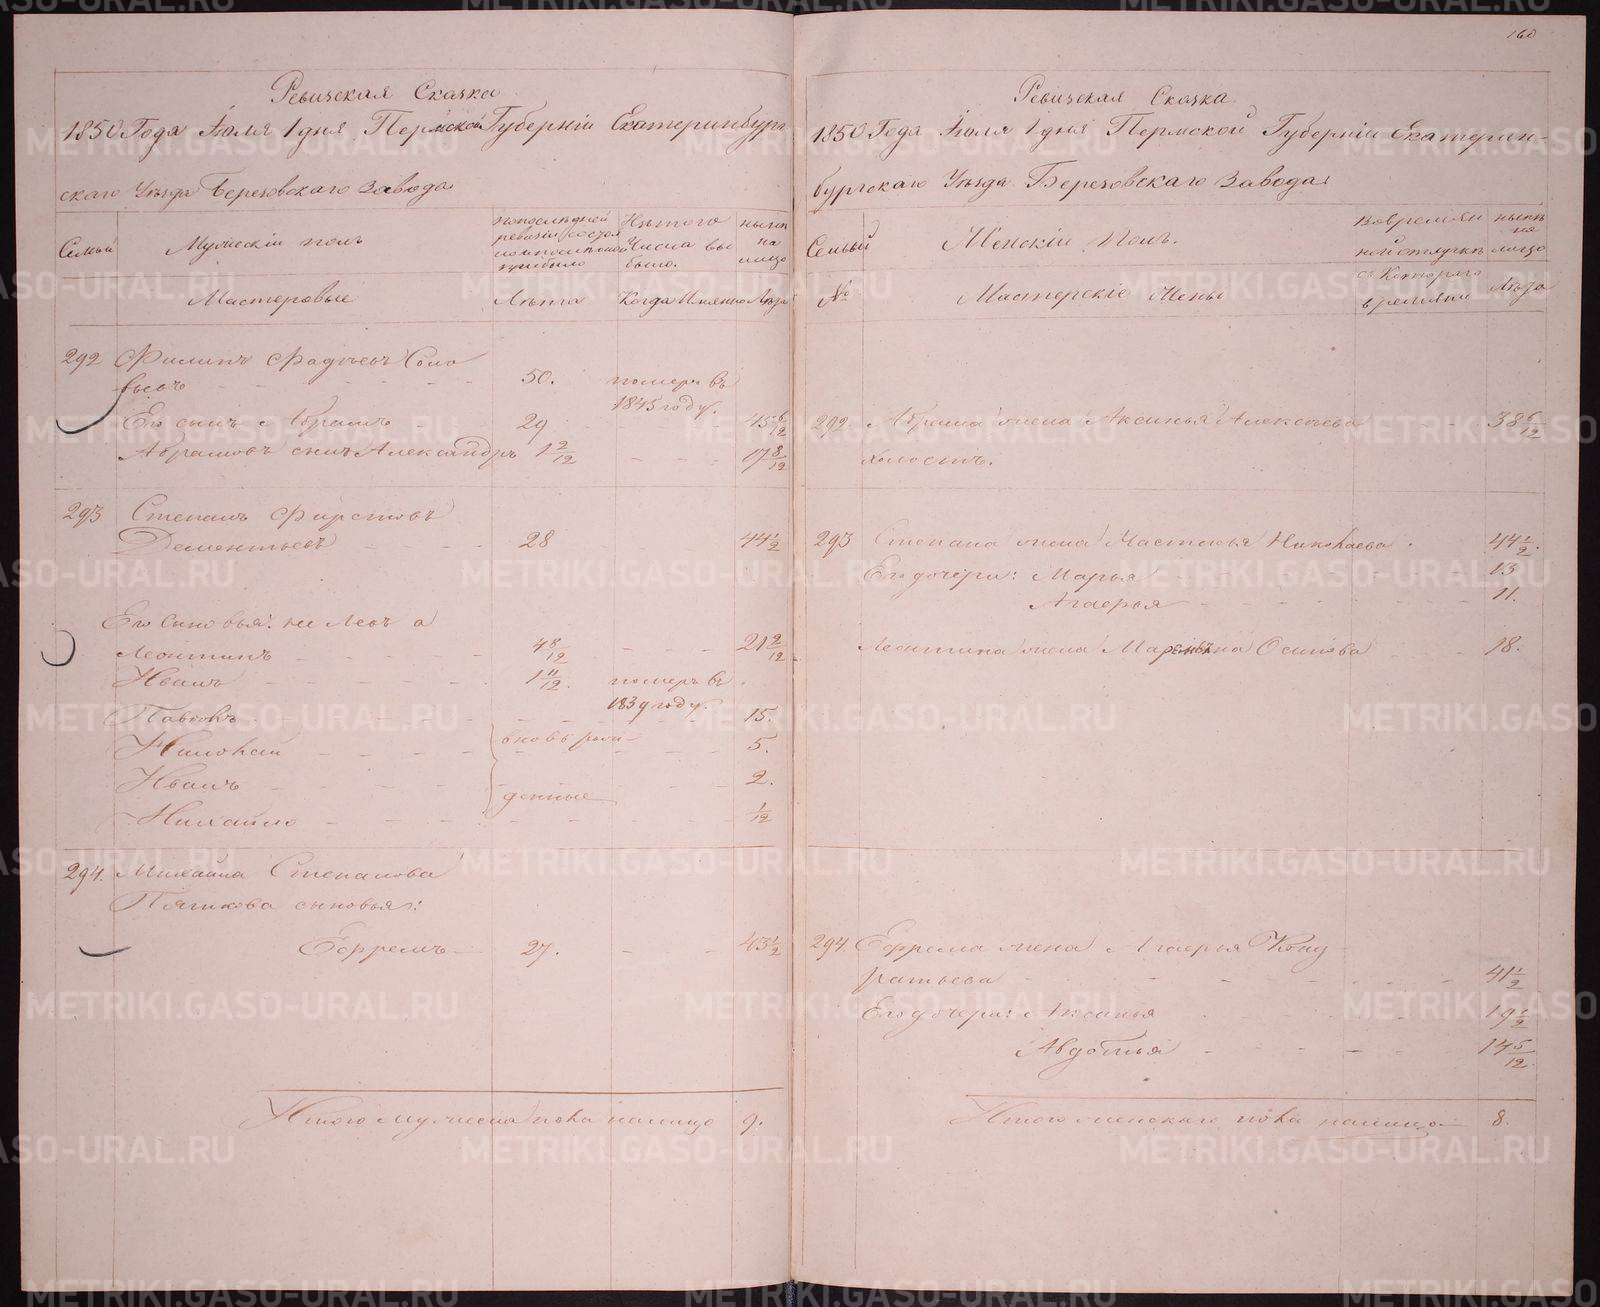 160
Ревизская Сказка
1850 Года Іюля 1 дня Пермской Губерніи Екатеринбург
скаго Уѣзда Березовскаго Завода
Семьи
Мужескій полъ
по последней ревизіи состояло и после того прибыло
Изъ того Числа вы было.
нынѣ на лицо
Мастеровые
Лѣта
Когда Именно
Лѣта
292 Филипъ Фадѣевъ Соло
вьевъ 50. померъ въ
1845 году.
Его сынъ Абрамъ 29 45 6/12
Абрамовъ сынъ Александръ 1 2/12 17 8/12
293 Степанъ Фирстовъ
Дементьевъ 28 44 1/2
Его Сыновья: не Левъ а
Леонтинъ 4 8/12 21 2/12
Иванъ 1 11/12. померъ въ
1839 году.
Павелъ 15.
Николай вновь рож 5.
Иванъ 2.
денные
Михайло 1/12
294. Михайла Степанова
Пяткова сыновья:
Ефремъ 27. 43 1/2
Итого мужеска пола налицо 9.
Ревизская Сказка
1850 Года Іюля 1 дня Пермской Губерніи Екатерин-
бургскаго Уѣзда Березовскаго Завода
Семьи
Женскій Полъ.
Во времян
ной отлучкѣ
нынѣ на лицо
№
Мастерскіе Жены
съ Котораго
времяни
Лѣта
292 Абрама жена Аксинья Алексѣева 38 6/12
холостъ.
293 Степана жена Настасья Николаева 44 1/2.
Его дочери: Марья 13
Агафья 11.
Леонтина жена Осипова 18.
294. Ефрема жена Агафья Конд
ратьева 41 1/2
Его дочери: Аксинья 19 1/2
Авдотья 14 5/12
Итого женскаго пола налицо 8.
METRIKI.GASO-URAL.RU